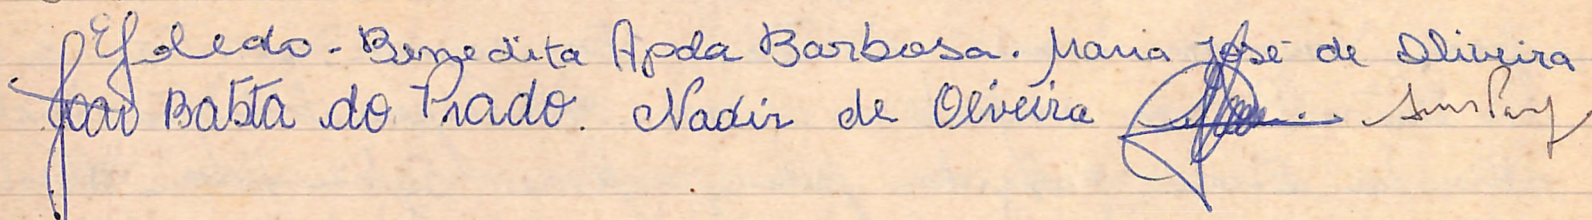 Toledo - Benedita Apda Barbosa. Maria José de Oliveira
João Batista do Prado. Nadir de Oliveira